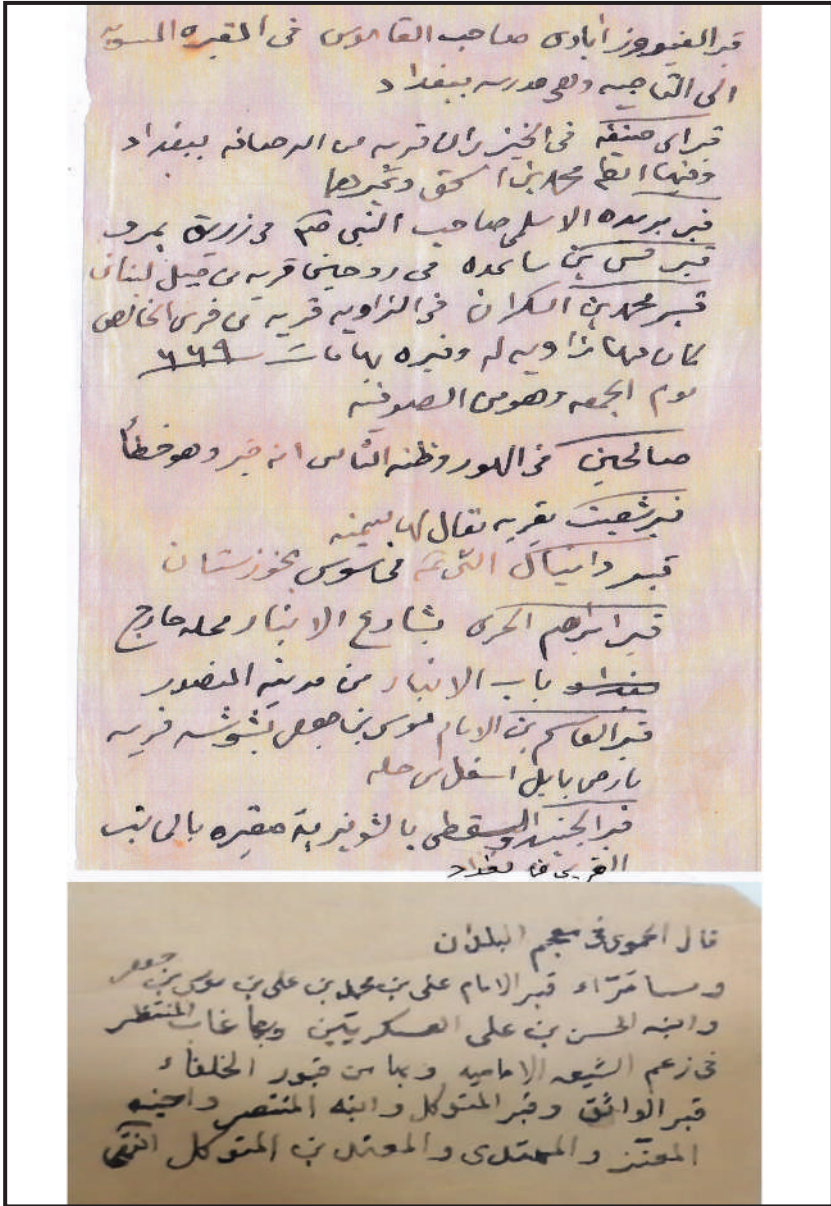 قبر الفيروزابادى صاحب القاموس فى المقبره المنسوبه
الى التاجيه وهى مدرسه ببغداد
قبر ابى حنيفه فى الخيزران قريه من الرصافه ببغداد
وفيها ايضا محمد بن اسحق وغيرها
قبر بريده الاسلمى صاحب النبى صلم فى زريق بمرو
قبر قس بن ساعده فى روحين قريه من جبل لبنان
قبر محمد بن السكران فى الزاويه قريه من قرى الخالص
كان فيها زاويه له وقبره بها مات سنة ٦٦٩
يوم الجمعه وهو من الصوفيه
صالحين فى الهور وظنه الناس انه قبر وهو خطأ
قبر شعيب بقريه يقال لها
قبر دانيال النبى عم بخوزستان
قبر ابراهيم الحربى بشارع الانبار محله خارج
بغداد باب الانبار من مدينه المنصور
قبر القاسم بن الامام موسى بن جعفر بشوشه قريه
بارض بابل اسفل من حله
قبر الجنيد والسقطى بالشونيزية مقبره بالجانب
الغربى من بغداد
قال الحموى فى معجم البلدان
وبسامراء قبر الامام على بن محمد بن على بن موسى بن جعفر
وابنه الحسن بن على العسكريين وبها غاب المنتظر
فى زعم الشيعه الاماميه وبها من قبور الخلفاء
قبر الواثق وقبر المتوكل وابنه المنتصر واخيه
المعتز والمهتدى والمعتمد بن المتوكل انتهى